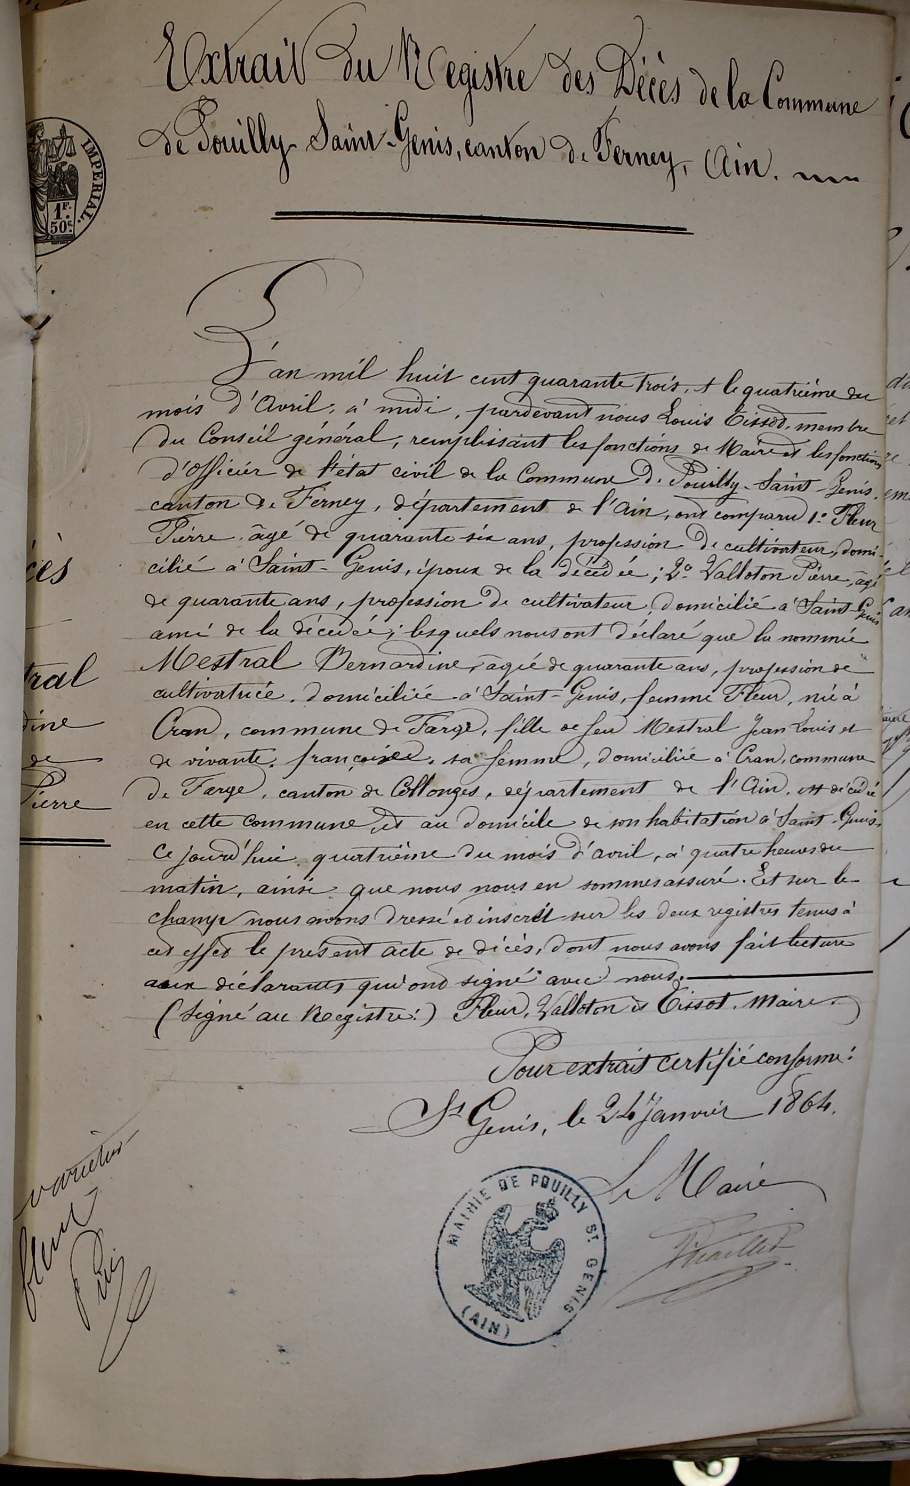 Extrait du Registre des Décès de la Commune
de Pouilly-Saint-Genis, canton de Ferney, Ain.
IMPERIAL.
1F.
50c
L'an mil huit cent quarante trois, et le quatrième du
mois d'Avril, à midi, pardevant nous Louis Tissot, membre
du Conseil général, remplissant les fonctions de Maire et les fonctions
d'officier de l'état civil de la Commune de Pouilly-Saint-Genis,
canton de Ferney, département de l'Ain, ont comparu 1º Fleur
Pierre âgé de quarante-six ans, profession de cultivateur, domi-
cilié à Saint-Genis, époux de la décédée; 2º Valloton Pierre, âgé
de quarante ans, profession de cultivateur, domicilié à Saint-Genis
ami de la décédée; lesquels nous ont déclaré que la nommée
Mestral Bernardine, âgée de quarante ans, profession de
cultivatrice, domiciliée à Saint-Genis, femme Fleur, née à
Cran, commune de Farge, fille de feu Mestral Jean Louis et
de vivante, françoise, sa femme, domicilié à Cran, commune
de Farge, canton de Collonges, département de l'Ain, est décédée
en cette commune, et au domicile de son habitation à Saint-Genis,
Ce jourd'hui quatrième du mois d'avril, à quatre heures du
matin, ainsi que nous nous en sommes assuré. Et sur le
champ nous avons dressé et inscrit sur les deux registres tenus à
cet effet le présent acte de décès, dont nous avons fait lecture
aux déclarants qui ont signé avec nous.
(Signé au Registre:) Fleur, Valloton et Tissot, Maire.
cès
tral
dine
de
Pierre
Pour extrait certifié conforme:
St Genis, le 24 Janvier 1864.
Le Maire
MAIRIE DE POUILLY ST GENIS
(AIN)
varietur
fleur